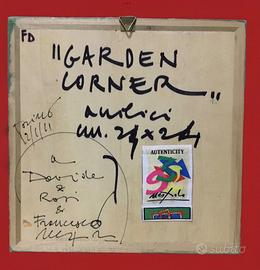 FD
"GARDEN
CORNER"
acrilici
cm. 24 x 24
Torino
a
Davide
&
Rosi
&
Francesco
AUTHENTICITY
subito